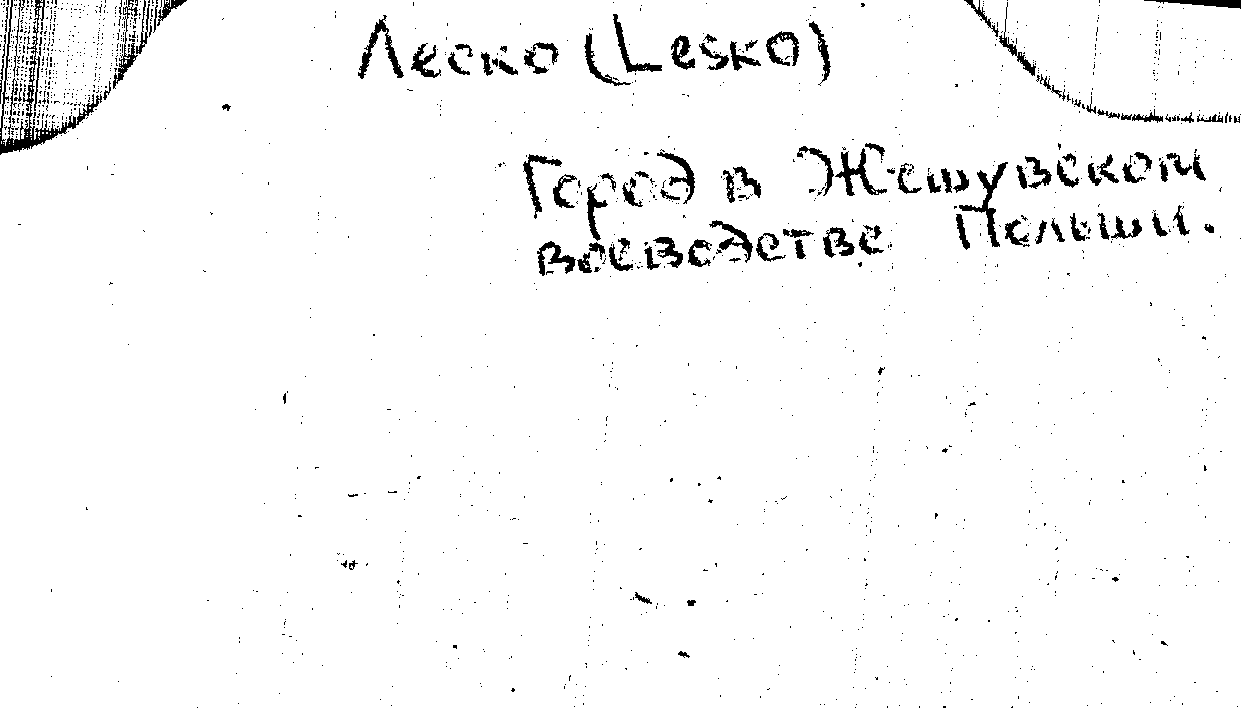 Леско (Lesko)
Город в Жешувском
воеводстве Польши.